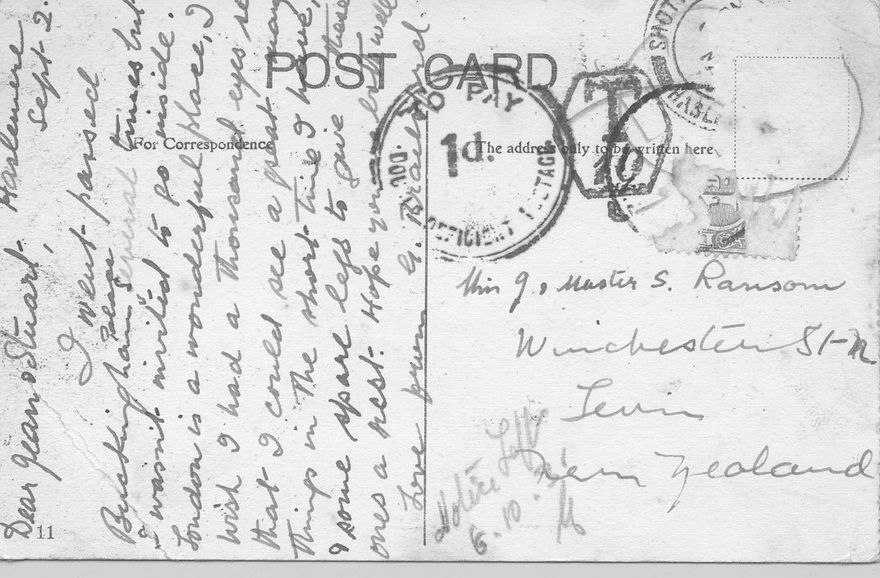 POST CARD
For Correspondence
The address only to be written here
Haslemere
Sept 2.
Dear Jean & Stuart,
I went passed
Buckingham Palace several times but
I wasn't invited to go inside.
London is a wonderful place, I
wish I had a thousand eyes so
that I could see a great many
things in the short time I have,
& some spare legs to give these
ones a rest. Hope you are both well
Love from G.
11
TO PAY
1d.
DEFICIENT POSTAGE
T
10
Miss J. & Master S. Ransom
Winchester St N
Levin
New Zealand
Notice Left
6.10.